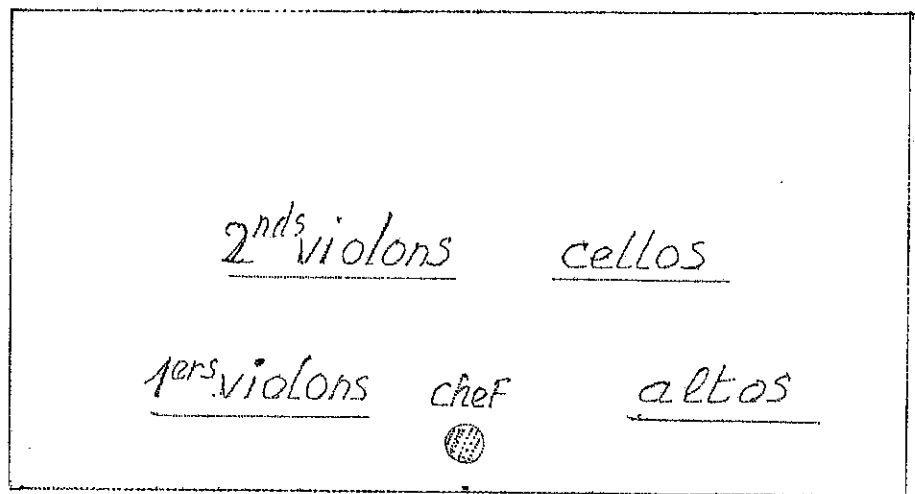 2nds violons cellos
1ers violons chef altos